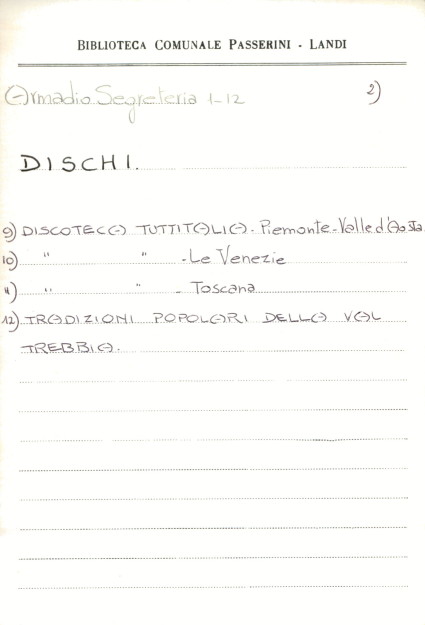 BIBLIOTECA COMUNALE PASSERINI - LANDI
Armadio Segreteria 1-12 2)
DISCHI.
9) DISCOTECA TUTTITALIA. Piemonte-Valle d'Aosta
10) " " - Le Venezie
11) " " - Toscana
12) TRADIZIONI POPOLARI DELLA VAL
TREBBIA.